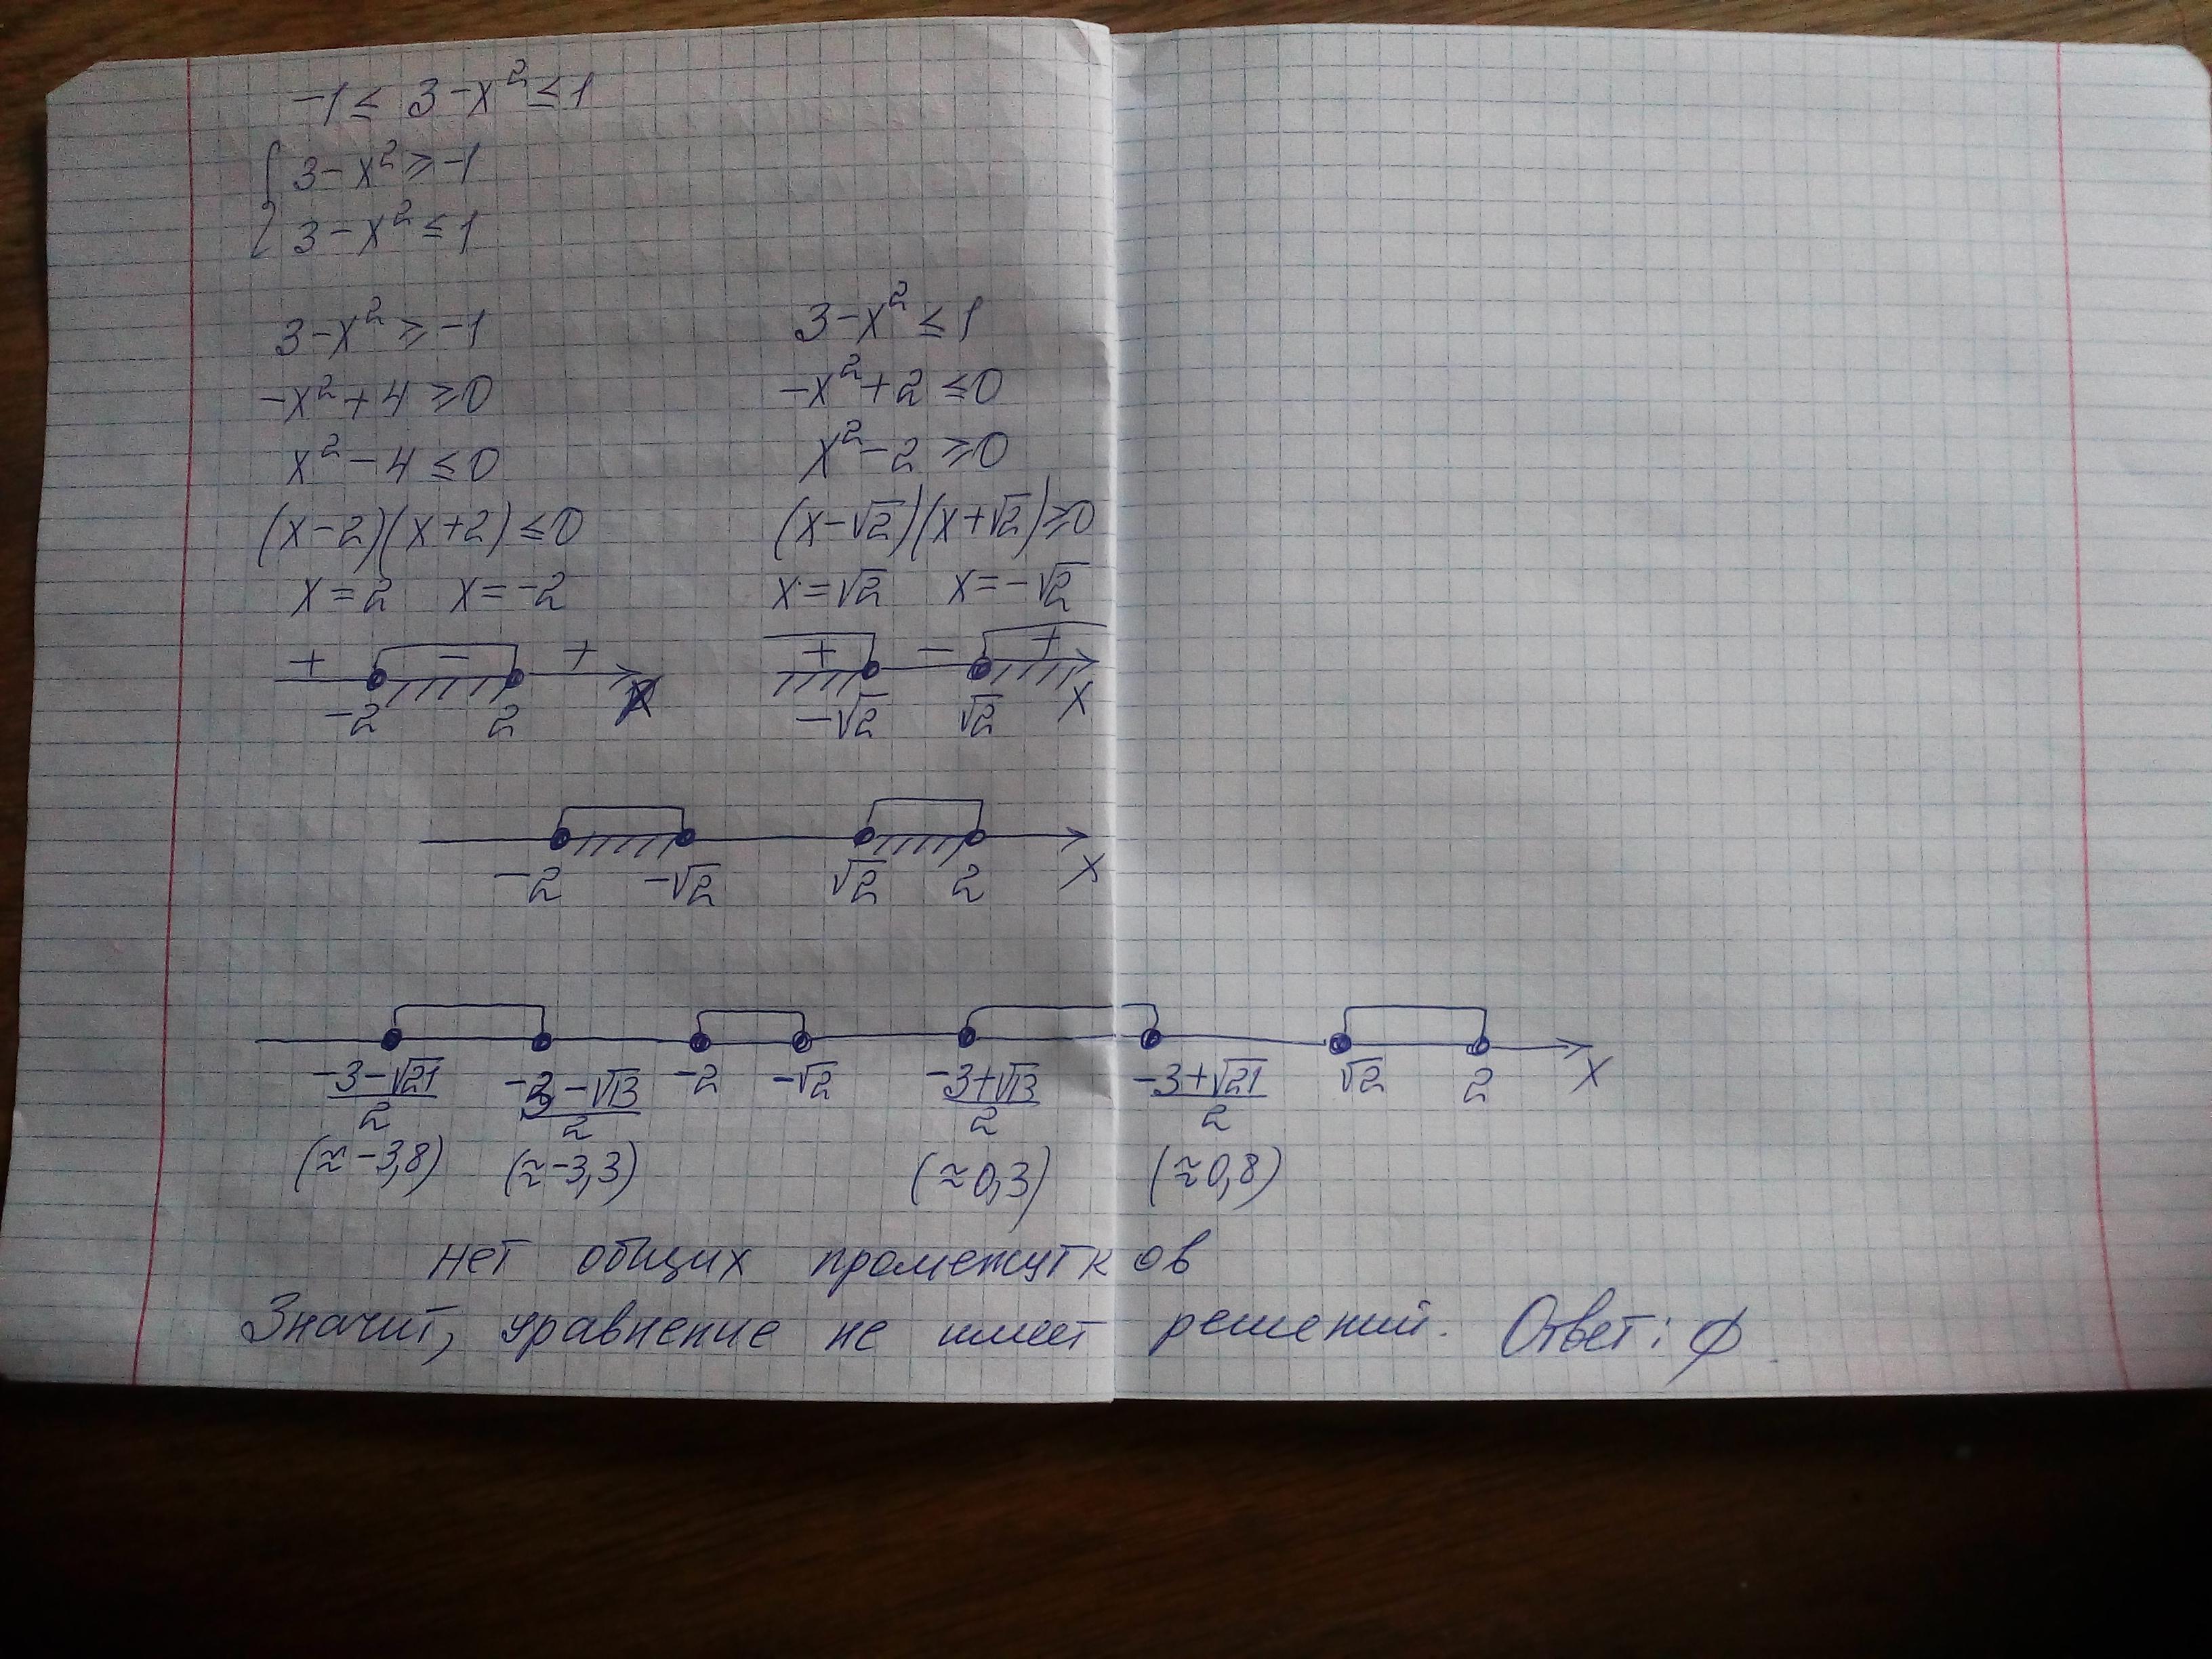 -1 ≤ 3-x² ≤ 1
{ 3-x² ≥ -1
3-x² ≤ 1
3-x² ≥ -1
-x²+4 ≥ 0
x²-4 ≤ 0
(x-2)(x+2) ≤ 0
x=2 x=-2
+ - +
-2 2 x
3-x² ≤ 1
-x²+2 ≤ 0
x²-2 ≥ 0
(x-√2)(x+√2) ≥ 0
x=√2 x=-√2
+ - +
-√2 √2 x
-2 -√2 √2 2 x
(-3-√21)/2 (-3-√13)/2 -2 -√2 (-3+√13)/2 (-3+√21)/2 √2 2 x
(≈-3,8) (≈-3,3) (≈0,3) (≈0,8)
нет общих промежутков
Значит, уравнение не имеет решений. Ответ: ∅.